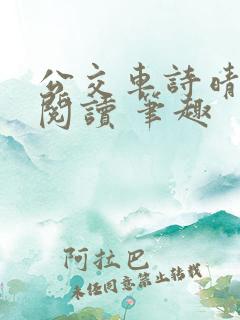 公交車詩晴
閱讀 筆趣
阿拉巴
未经同意禁止转载